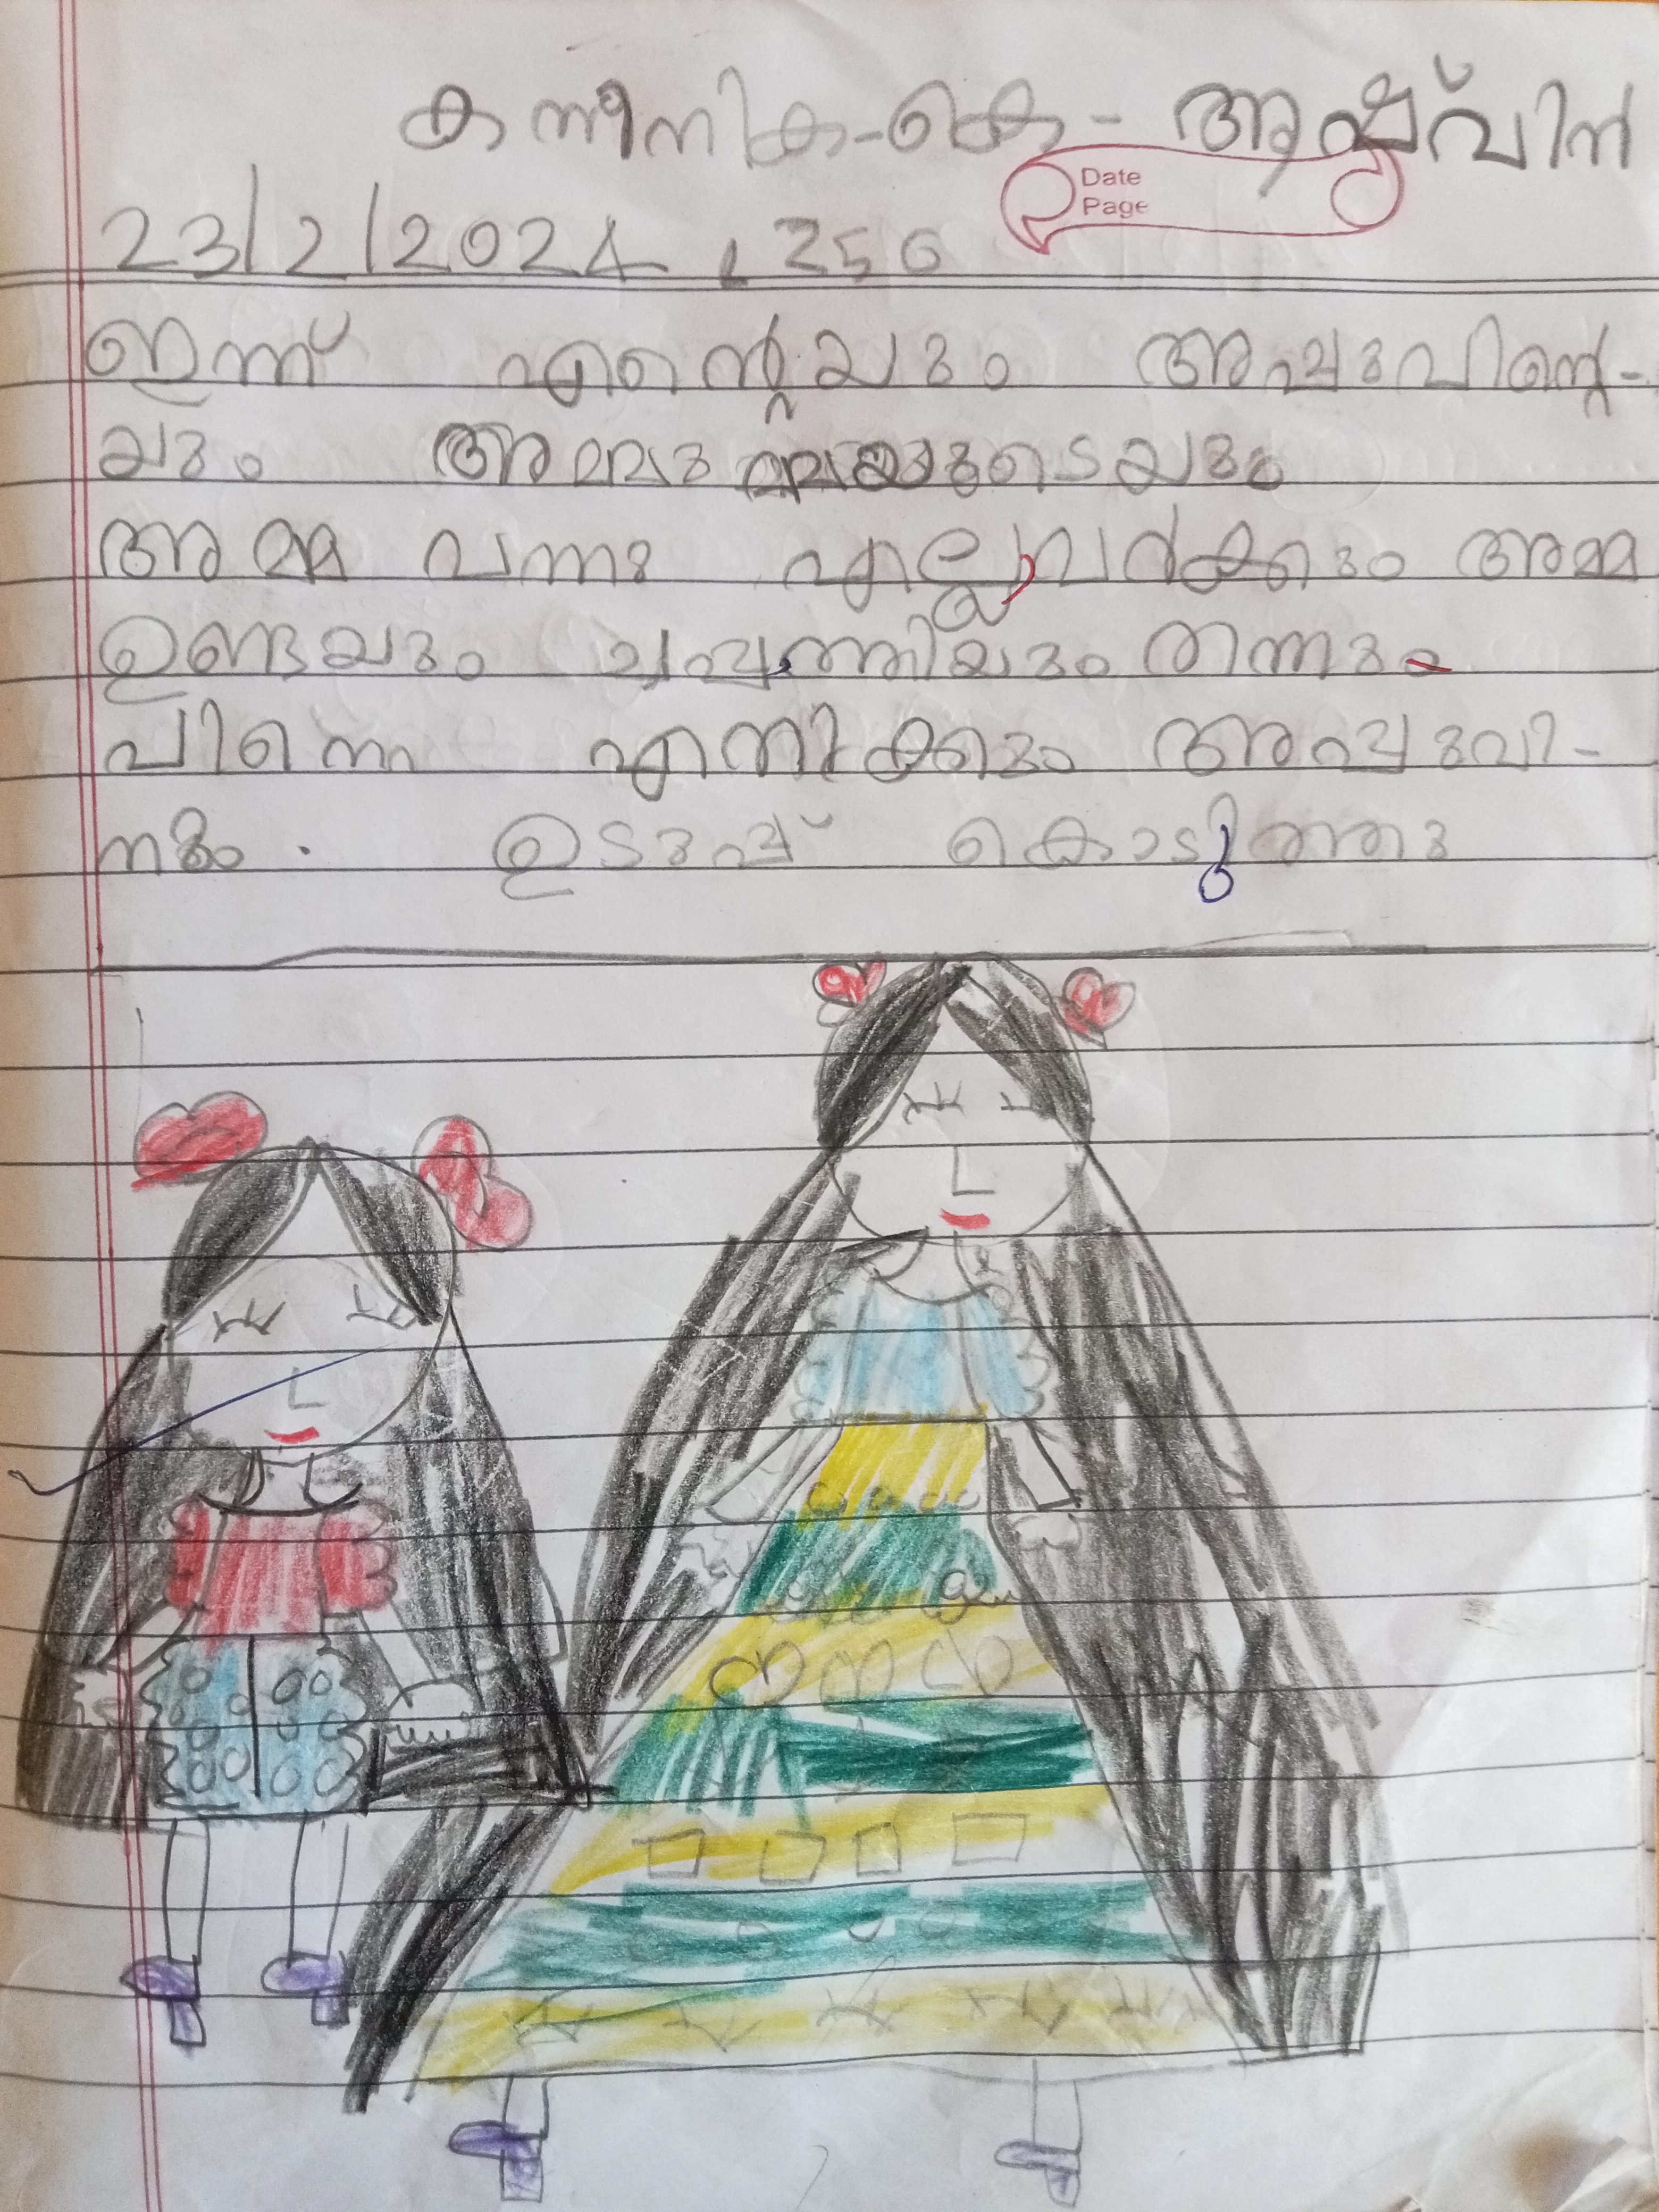 കനീനിക-കെ- ആഷ്വിൻ
Date
Page
23/2/2024
ഇന്ന് എന്റെയും അപ്പുവിന്റെ-
യും അമ്മു
അമ്മ വന്നു എല്ലാവർക്കും അമ്മ
ഉണ്ടയും ചപ്പാത്തിയും തന്നു
പിന്നെ എനിക്കും അപ്പുവി-
നും. ഉടുപ്പ് കൊടുത്തു